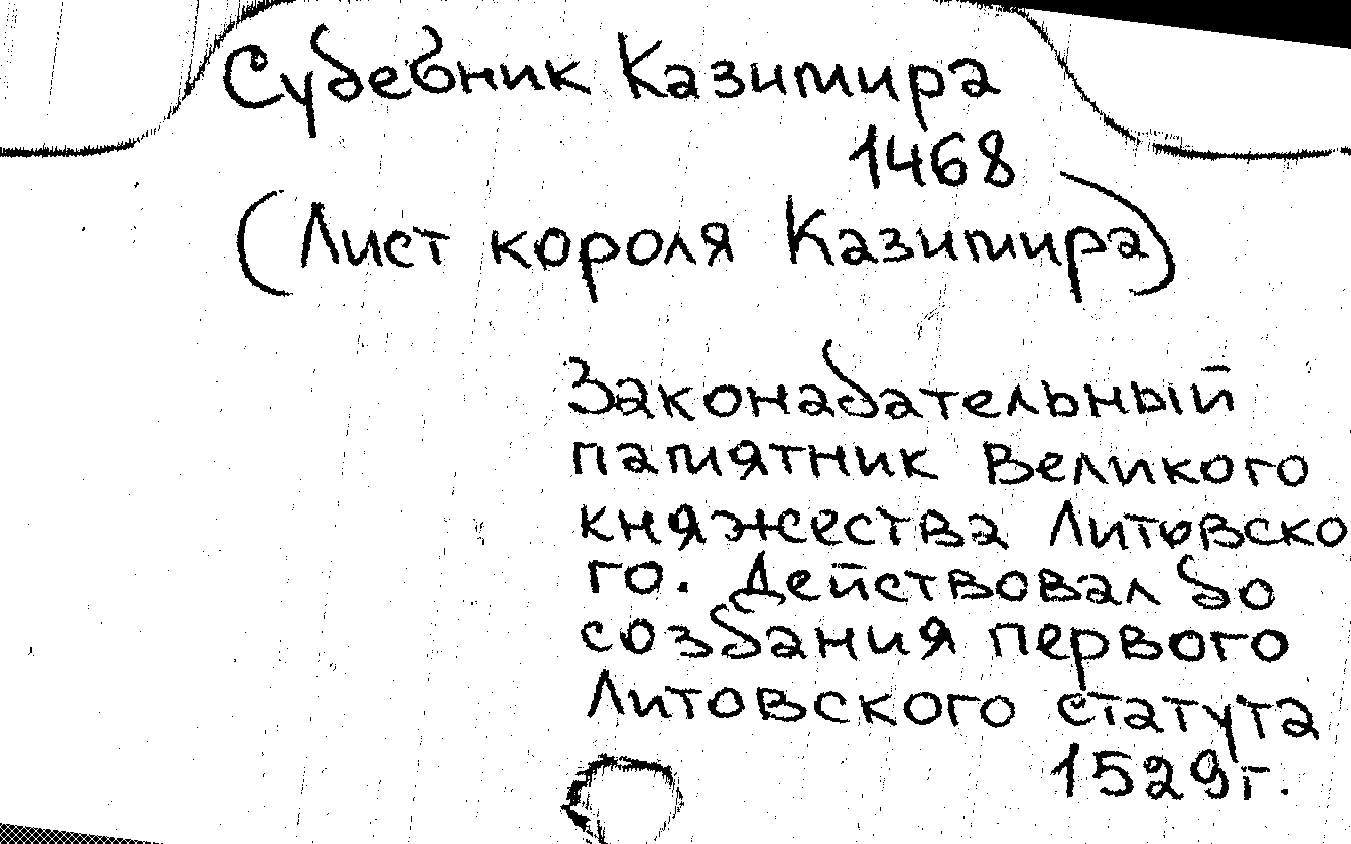 Судебник Казимира
1468
(Лист короля Казимира)
Законадательный
памятник Великого
княжества Литовско
го. Действовал до
создания первого
Литовского статута
1529г.